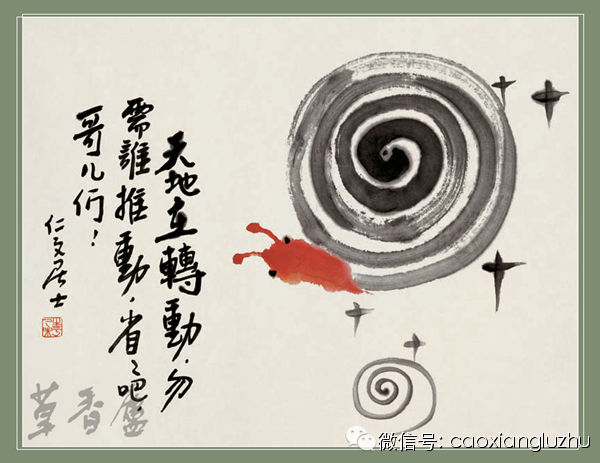 天地在轉動，勿
需誰推動，省省吧，
哥儿们！
仁文居士
草香廬
微信号: caoxiangluzhu